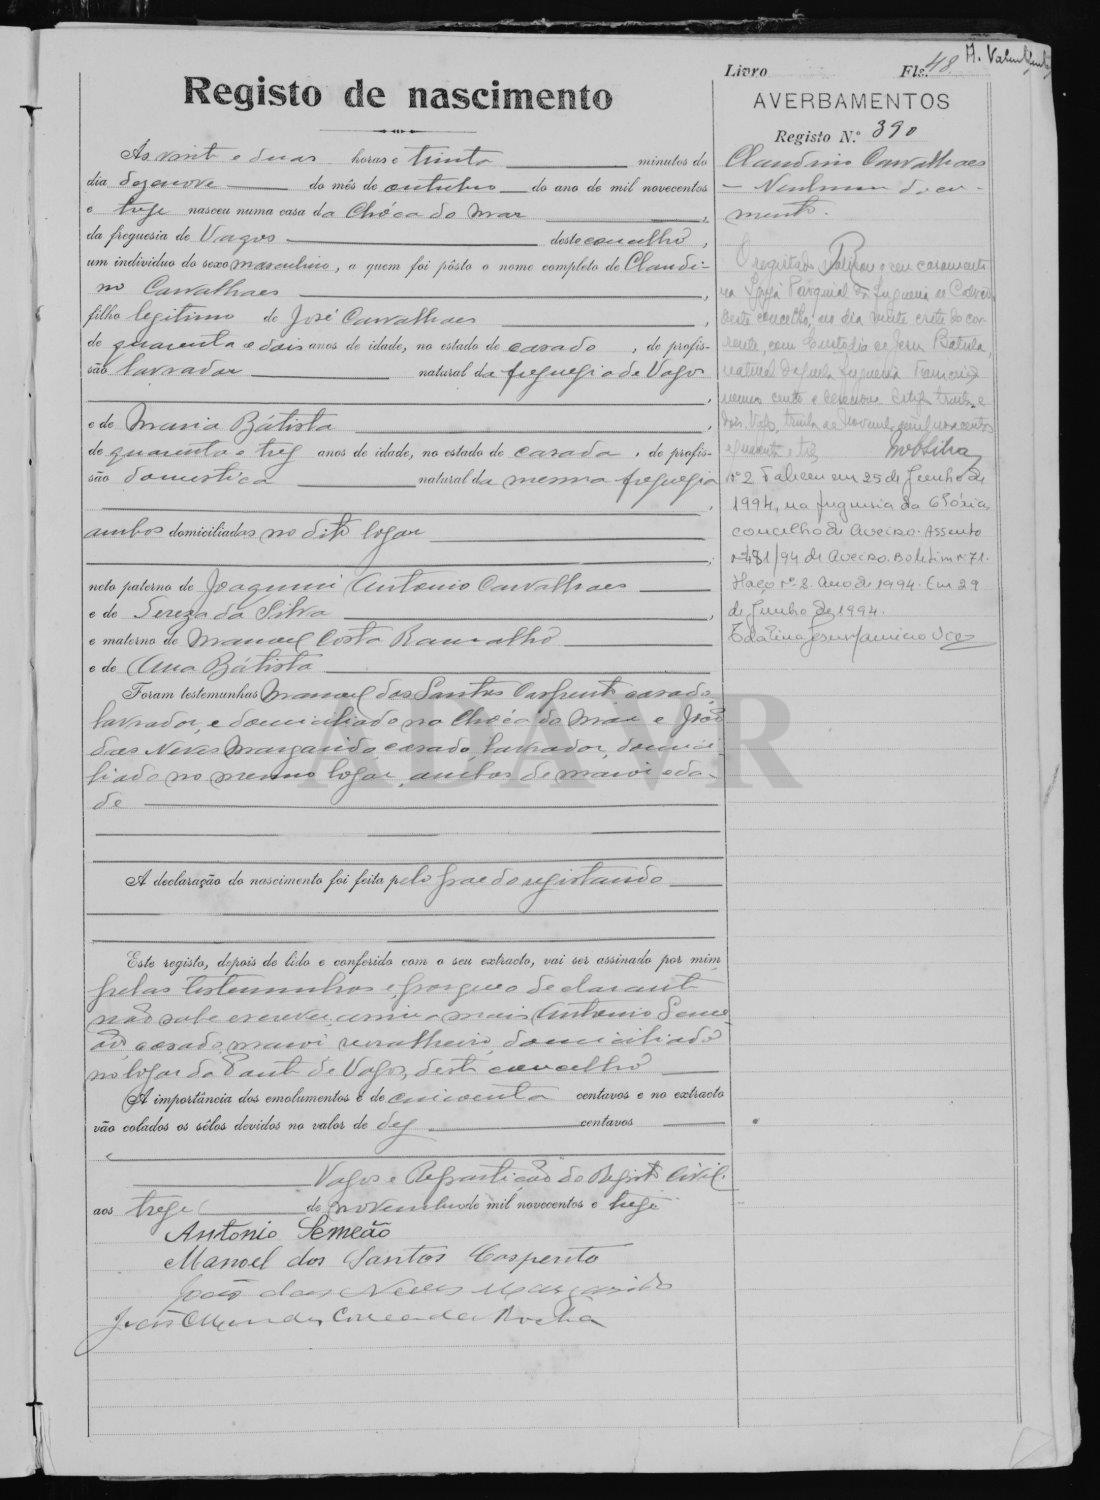 Livro Fls. 48
Registo de nascimento
AVERBAMENTOS
Registo N.º 390
As vinte e duas horas e trinta minutos do
dia dezenove do mês de outubro do ano de mil novecentos
e treze nasceu numa casa da Chóca do Mar,
da freguesia de Vagos deste concelho,
um individuo do sexo masculino, a quem foi pôsto o nome completo de Claudi-
no Carvalhaes,
filho legitimo de José Carvalhaes,
de quarenta e dois anos de idade, no estado de casado, de profis-
são lavrador natural da freguezia de Vagos,
e de Maria Bátista,
de quarenta e trez anos de idade, no estado de casada, de profis-
são domestica natural da mesma freguezia,
ambos domiciliados no dito logar;
neto paterno de Joaquim Antonio Carvalhaes
e de Tereza da Silva,
e materno de Manoel Costa Ramalho
e de Ana Bátista
Foram testemunhas Manoel dos Santos casado,
lavrador, e domiciliado na Chóca do Mar e João
das Neves Margarido casado, lavrador, domici-
liado no mesmo logar, ambos de maior eda-
de
A declaração do nascimento foi feita pelo pae do registando
Este registo, depois de lido e conferido com o seu extracto, vai ser assinado por mim
pelas testemunhas e, porque o declarante
não sabe escrever, assina mais Antonio Seme-
ão, casado, maior, serralheiro, domiciliado
no logar da Ponte de Vagos, deste concelho
A importância dos emolumentos é de cincoenta centavos e no extracto
vão colados os sêlos devidos no valor de dez centavos
Vagos e Repartição do Registo Civil,
aos treze de novembro de mil novecentos e treze
Antonio Semeão
Manoel dos Santos
João das Neves Margarido
João Mendes Correa da Rocha
Claudino Carvalhaes
– Nenhum docu-
mento.
O registado celebrou o seu casamento
na Igreja Paroquial da freguesia de Covão
deste concelho, no dia vinte e sete do cor-
rente, com de Jesus Batista,
natural daquela freguesia
numero cento e dezenove
Vagos, trinta de Novembro de mil novecentos
e quarenta e três
Nº 2 Faleceu em 25 de Junho de
1994, na freguesia da Glória,
concelho de Aveiro. Assento
nº 481/94 de Aveiro. Boletim nº 71.
Maço nº 2. Ano de 1994. Em 29
de Junho de 1994.
ADAVR